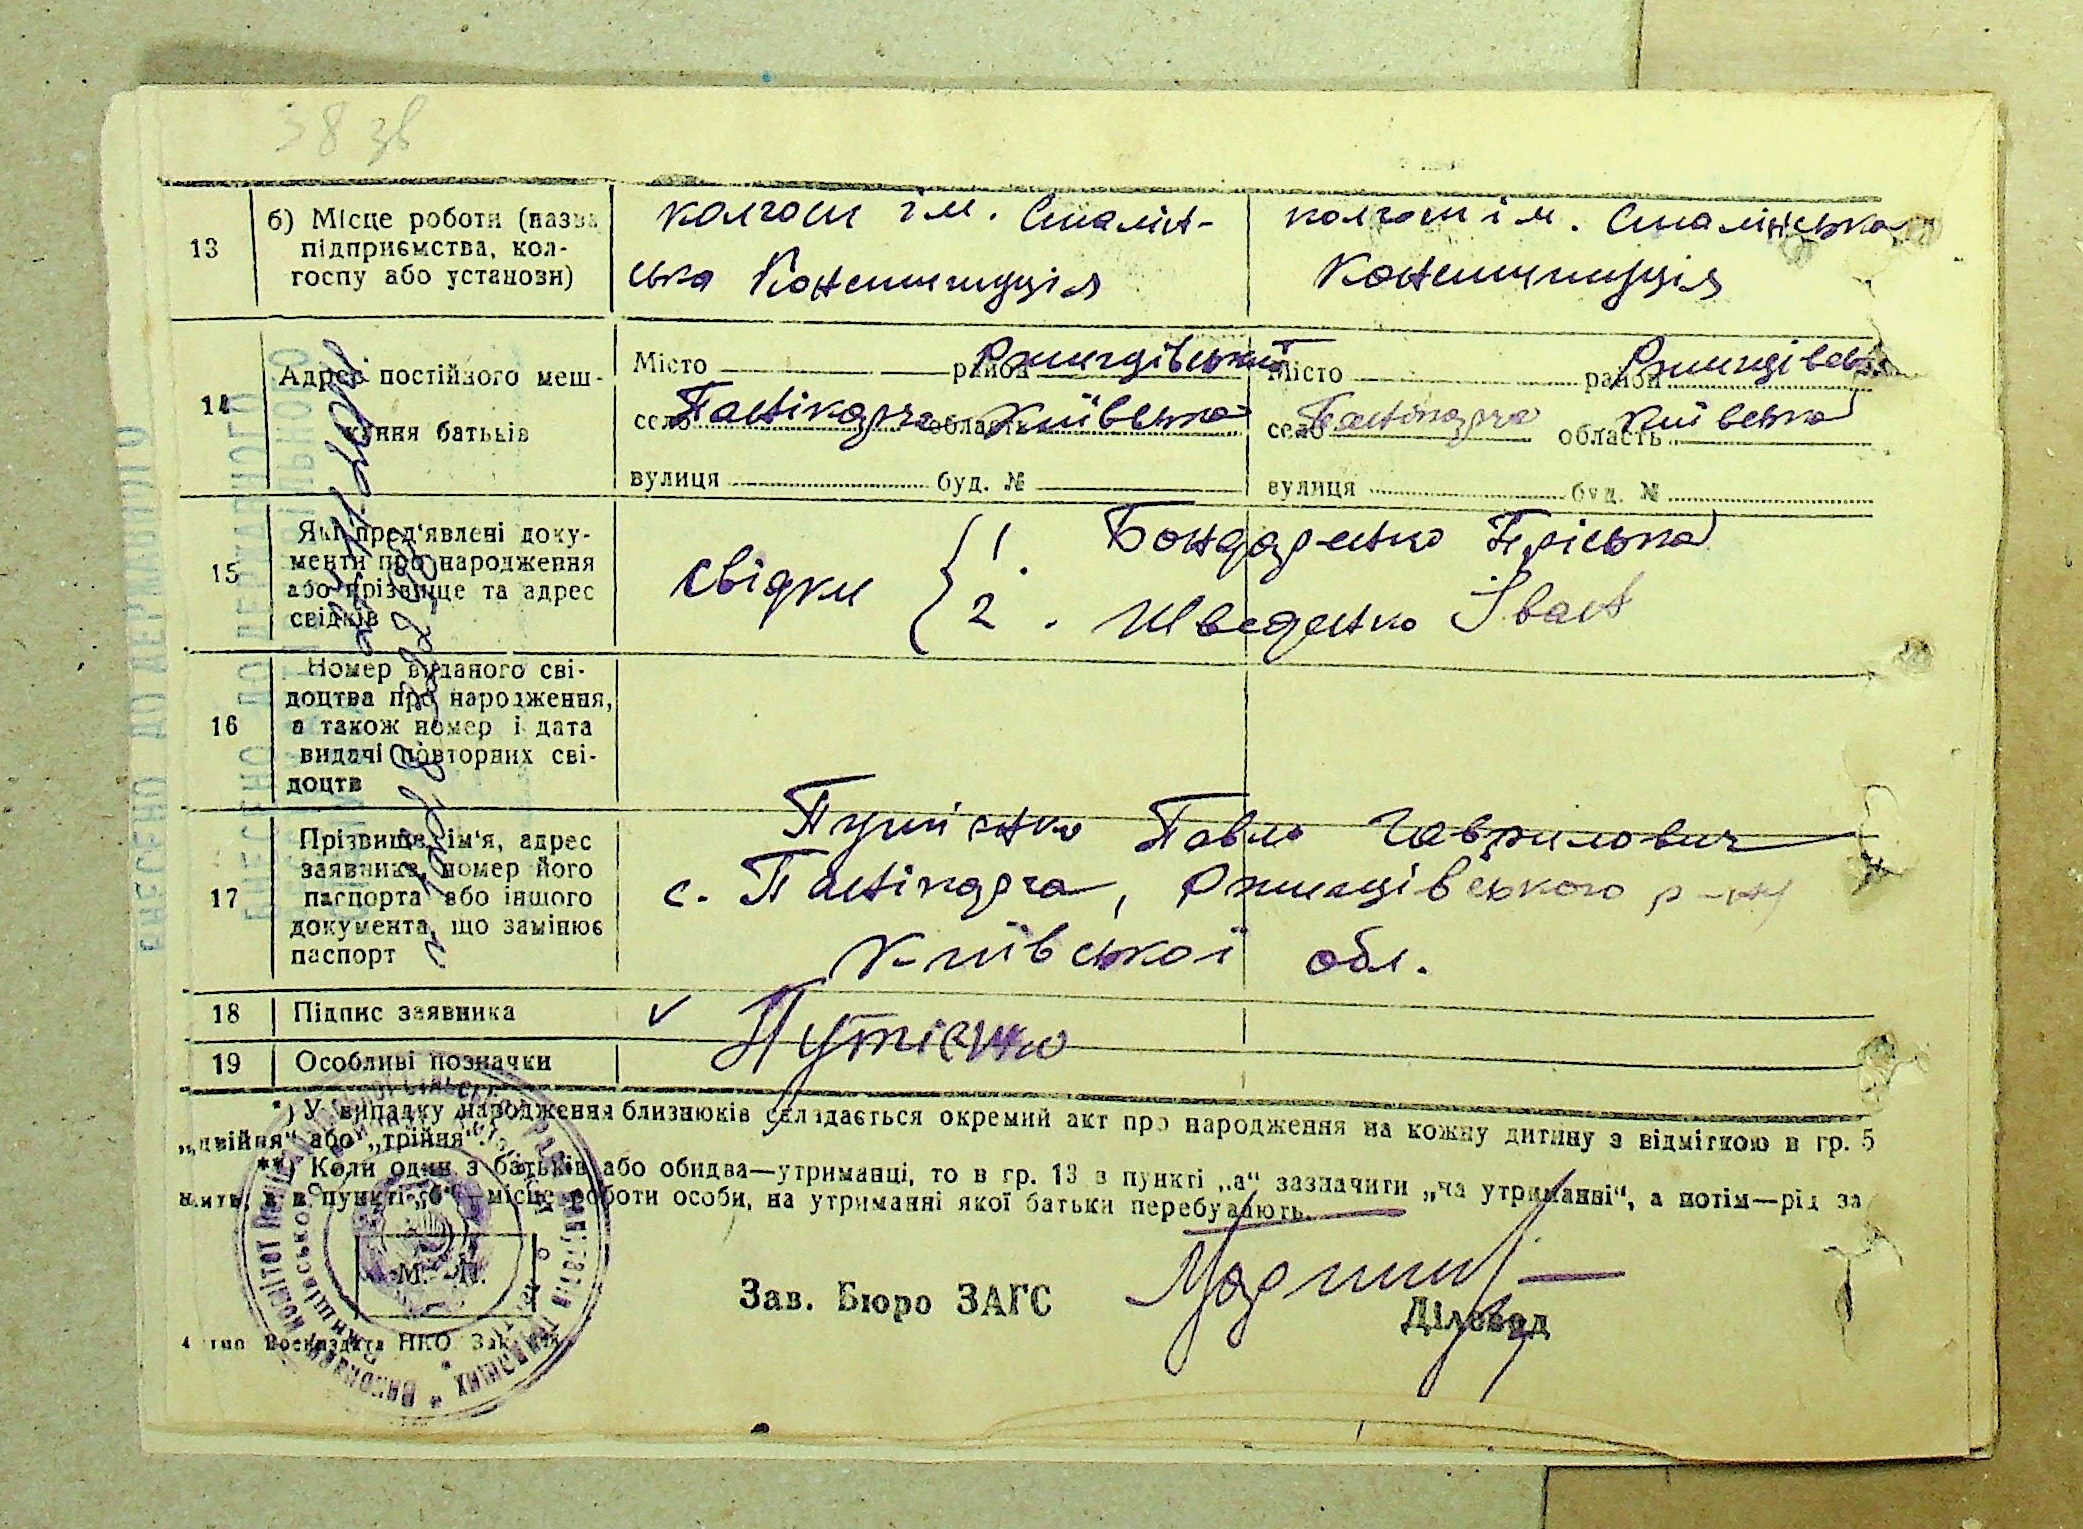 38 зв
13
б) Місце роботи (назва
підприємства, кол-
госпу або установи)
колгосп ім. Сталін-
ська Конституція
колгосп ім. Сталінська
Конституція
14
Адрес постійного меш-
кання батьків
Місто район Ржищівський
село Панікарча область Київська
вулиця буд. №
Місто район Ржищівськ
село Панікарча область Київська
вулиця буд. №
15
Які пред'явлені доку-
менти про народження
або прізвище та адрес
свідків
свідки
1. Бондаренко Пріська
2. Шведенко Іван
16
Номер виданого сві-
доцтва про народження,
а також номер і дата
видачі повторних сві-
доцтв
17
Прізвище, ім'я, адрес
заявника, номер його
паспорта або іншого
документа, що замінює
паспорт
Путієнко Павло Гаврилович
с. Панікарча, Ржищівського р-ну
Київської обл.
18
Підпис заявника
Путієнко
19
Особливі позначки
*) У випадку народження близнюків складається окремий акт про народження на кожну дитину з відміткою в гр. 5
„двійня“ або „трійня“.
**) Коли один з батьків або обидва—утриманці, то в гр. 13 в пункті „а“ зазначити „на утриманні“, а потім—рід за
нять, а в пункті „б“—місце роботи особи, на утриманні якої батьки перебувають.
М. П.
Зав. Бюро ЗАГС
Діловод